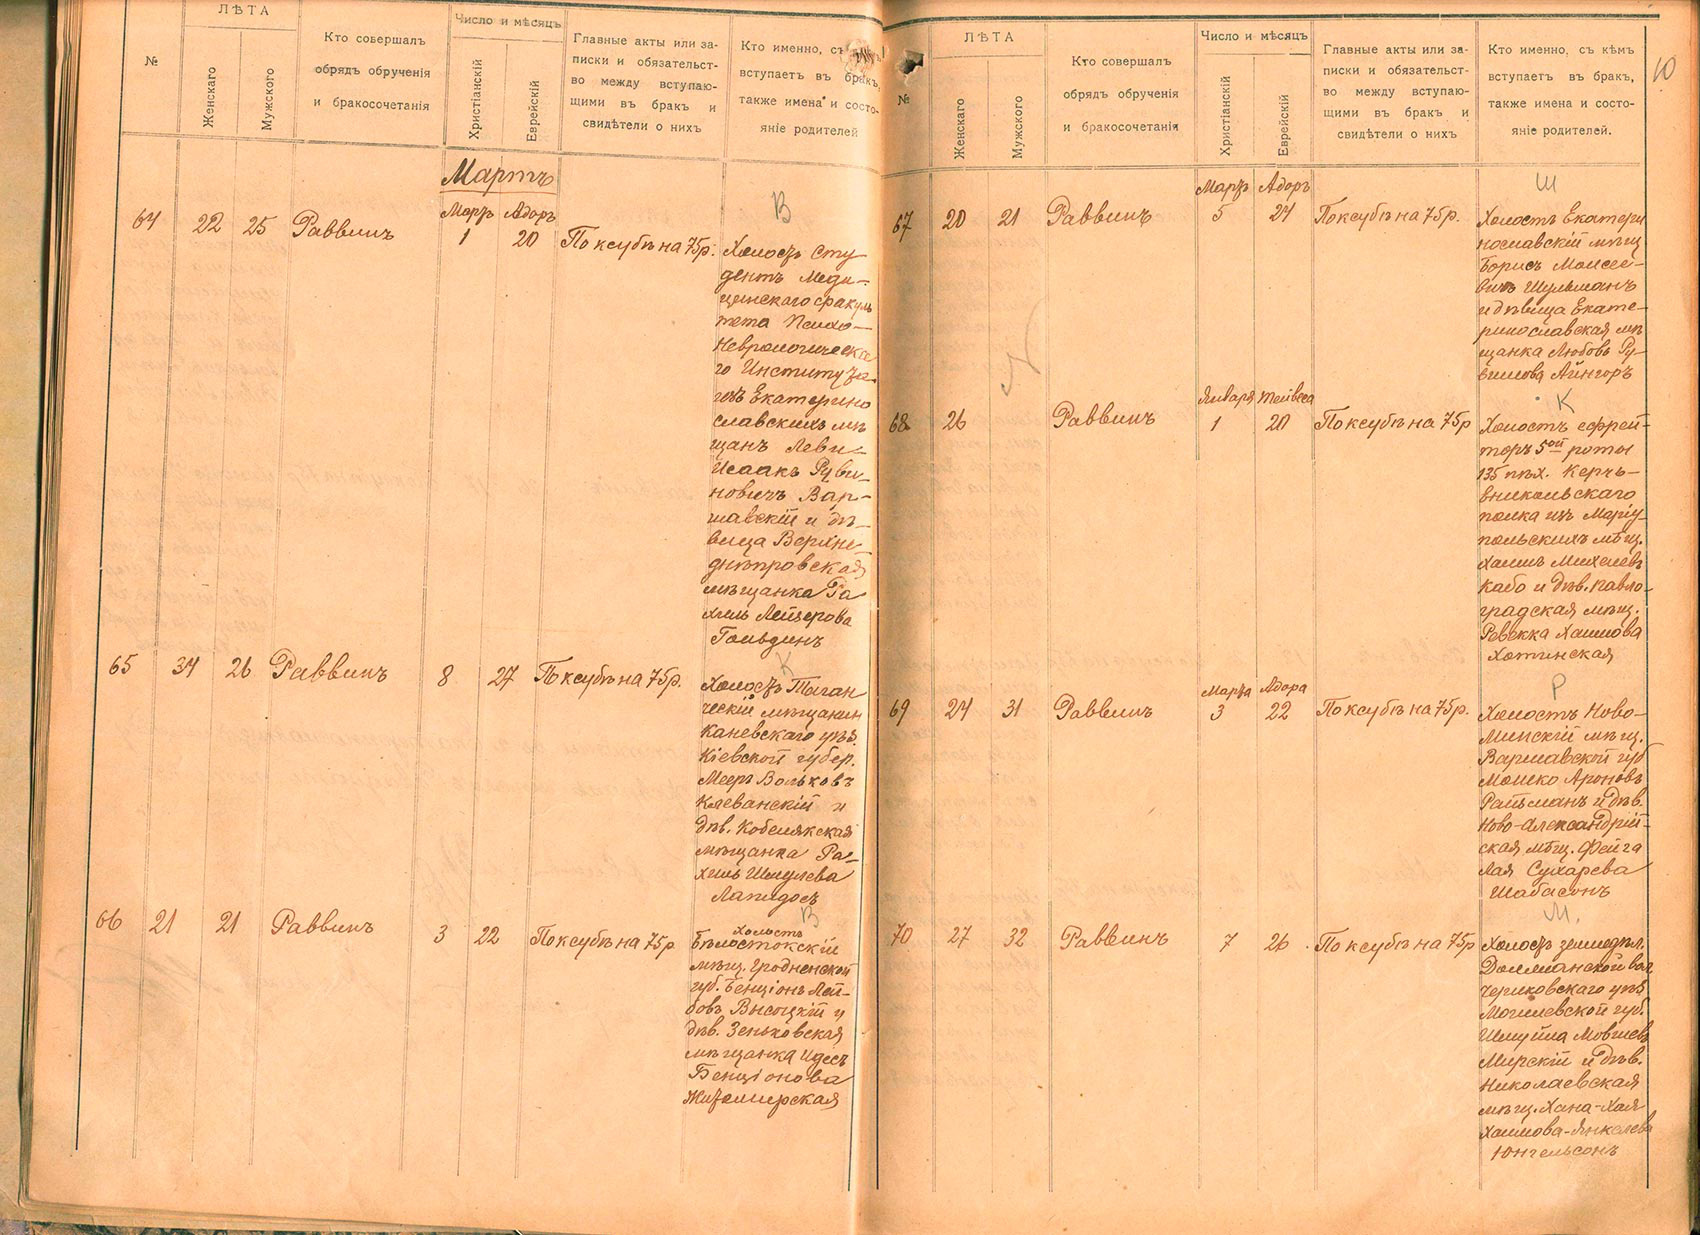 ЛѢТА
Число и мѣсяцъ
№
Женскаго
Мужского
Кто совершалъ
обрядъ обрученія
и бракосочетанія
Христіанскій
Еврейскій
Главные акты или за-
писки и обязательст-
во между вступаю-
щими въ бракъ и
свидѣтели о нихъ
Кто именно, съ
вступаетъ въ бракъ,
также имена и состо-
яніе родителей
Мартъ
В
64 22 25 Раввинъ Мартъ 1 Адоръ 20 По ксубѣ на 75 р.
Холостъ Сту-
дентъ Меди-
цинскаго факуль
тета Психо-
Неврологическа
го Института
изъ Екатерино
славскихъ мѣ
щанъ Леви-
Исаакъ Руви-
новичъ Вар-
шавскій и дѣ-
вица Верхне-
днѣпровская
мѣщанка Ра
хиль Лейзерова
Гольдинъ
К
65 34 26 Раввинъ 8 27 По ксубѣ на 75 р.
Холостъ Таган
ческій мѣщанин
Каневскаго уѣз.
Кіевской губер.
Меер Вольковъ
Клеванскій и
дѣв. Кобелякская
мѣщанка Ра-
хиль Шмулева
Лапидосъ
В
66 21 21 Раввинъ 3 22 По ксубѣ на 75 р.
Холостъ
Бѣлостокскій
мѣщ. Гродненской
губ. Бенціонъ Лей-
бовъ Высоцкій и
дѣв. Зеньковская
мѣщанка Идесъ
Бенціонова
Житомирская
10
ЛѢТА
Число и мѣсяцъ
№
Женскаго
Мужского
Кто совершалъ
обрядъ обрученія
и бракосочетанія
Христіанскій
Еврейскій
Главные акты или за-
писки и обязательст-
во между вступаю-
щими въ бракъ и
свидѣтели о нихъ
Кто именно, съ кѣмъ
вступаетъ въ бракъ,
также имена и состо-
яніе родителей.
Ш
67 20 21 Раввинъ Мартъ 5 Адоръ 24 По ксубѣ на 75 р.
Холостъ Екатери
нославскій мѣщ
Борисъ Моисее-
вичъ Шульманъ
и дѣвица Екате-
ринославская мѣ
щанка Любовь Ру-
вимова Айнгоръ
К
68 26 Раввинъ Января 1 Тейвеса 20 По ксубѣ на 75 р
Холостъ ефрей-
торъ 5ой роты
135 пѣх. Керчь-
Еникольскаго
полка изъ Маріу-
польскихъ мѣщ.
Хаимъ Михелевъ
Кабо и дѣв. Павло-
градская мѣщ.
Ревекка Хаимова
Хотинская
Р
69 24 31 Раввинъ Марта 3 Адора 22 По ксубѣ на 75 р.
Холостъ Ново-
Минскій мѣщ.
Варшавской губ
Мошко Ароновъ
Райзманъ и дѣв.
Ново-Александрій-
ская мѣщ. Фейга
Лая Сухарева
Шабасонъ
М.
70 27 32 Раввинъ 7 26 По ксубѣ на 75 р
Холостъ земледѣл.
вол
Чериковскаго уѣз
Могилевской губ.
Шмуйла Мовшевъ
Мирскій и дѣв.
Николаевская
мѣщ. Хана-Хая
Хаимова-Янкелева
Юнгельсонъ